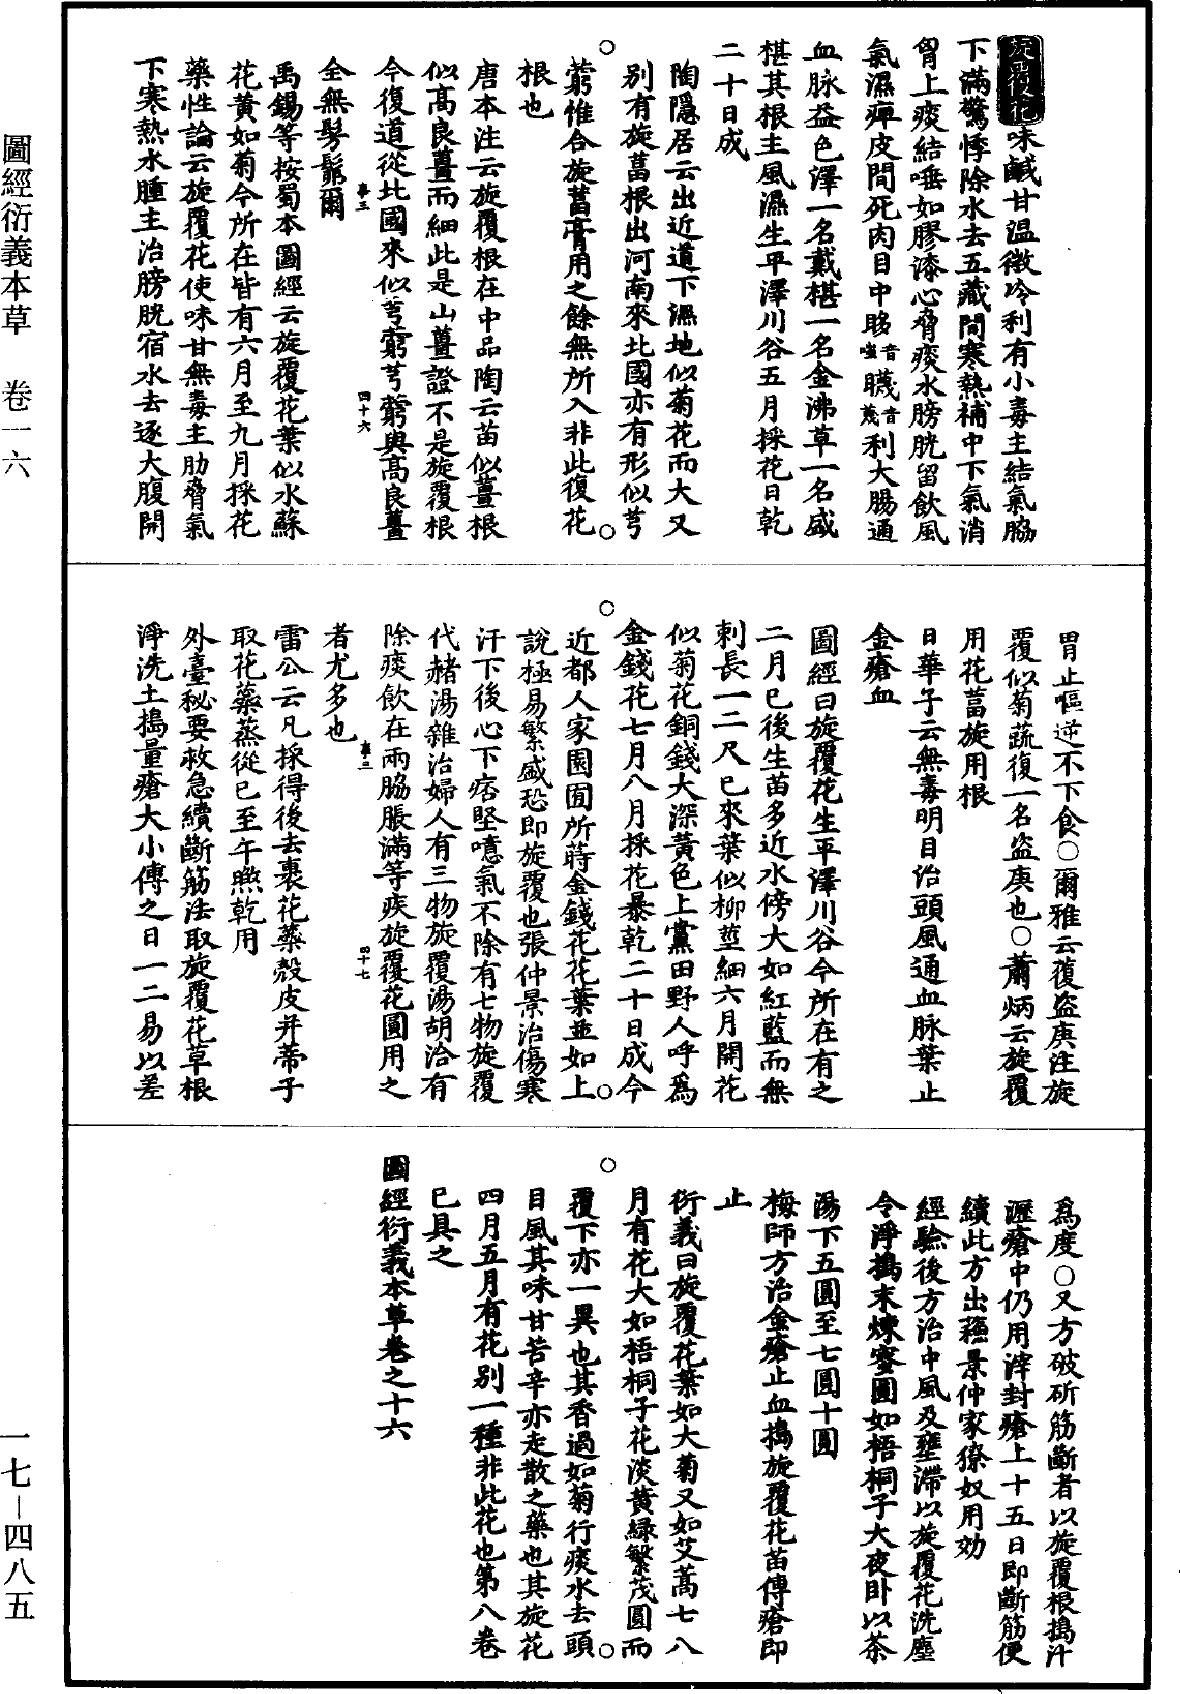 旋覆花味鹹甘温微冷利有小毒主結氣脇
下滿驚悸除水去五藏間寒熱補中下氣消
胷上痰結唾如膠漆心脅痰水膀胱留飲風
氣濕痺皮間死肉目中眵音嗤䁾音蔑利大腸通
血脉益色澤一名戴椹一名金沸草一名盛
椹其根主風濕生平澤川谷五月採花日乾
二十日成
陶隱居云出近道下濕地似菊花而大又
別有旋葍根出河南來北國亦有形似芎
藭惟合旋葍膏用之餘無所入非此復花
根也
唐本注云旋覆根在中品陶云苗似薑根
似高良薑而細此是山薑證不是旋覆根
今復道從北國來似芎藭芎藭與高良薑
全無髣髴爾
草三
四十六
禹錫等按蜀本圖經云旋覆花葉似水蘇
花黃如菊今所在皆有六月至九月採花
藥性論云旋覆花使味甘無毒主肋脅氣
下寒熱水腫主治膀胱宿水去逐大腹開
胃止嘔逆不下食○爾雅云覆盜庚注旋
覆似菊蔬復一名盜庚也○蕭炳云旋覆
用花葍旋用根
日華子云無毒明目治頭風通血脉葉止
金瘡血
圖經曰旋覆花生平澤川谷今所在有之
二月已後生苗多近水傍大如紅藍而無
刺長一二尺已來葉似柳莖細六月開花
似菊花銅錢大深黃色上黨田野人呼爲
金錢花七月八月採花暴乾二十日成今
近都人家園囿所蒔金錢花花葉並如上
說極易繁盛恐即旋覆也張仲景治傷寒
汗下後心下痞堅噫氣不除有七物旋覆
代赭湯雜治婦人有三物旋覆湯胡洽有
除痰飲在兩脇脹滿等疾旋覆花圓用之
者尤多也
草三
四十七
雷公云凡採得後去裹花蘂殼皮并蒂子
取花蘂蒸從巳至午㬠乾用
外臺秘要救急續斷筋法取旋覆花草根
淨洗土搗量瘡大小傅之日一二易以差
爲度○又方破斫筋斷者以旋覆根搗汁
瀝瘡中仍用滓封瘡上十五日即斷筋便
續此方出蘇景仲家獠奴用効
經驗後方治中風及壅滯以旋覆花洗塵
令淨搗末煉蜜圓如梧桐子大夜卧以茶
湯下五圓至七圓十圓
梅師方治金瘡止血搗旋覆花苗傅瘡即
止
衍義曰旋覆花葉如大菊又如艾蒿七八
月有花大如梧桐子花淡黃綠繁茂圓而
覆下亦一異也其香過如菊行痰水去頭
目風其味甘苦辛亦走散之藥也其旋花
四月五月有花別一種非此花也第八卷
已具之
圖經衍義本草卷之十六
圖經衍義本草　卷一六
一七—四八五